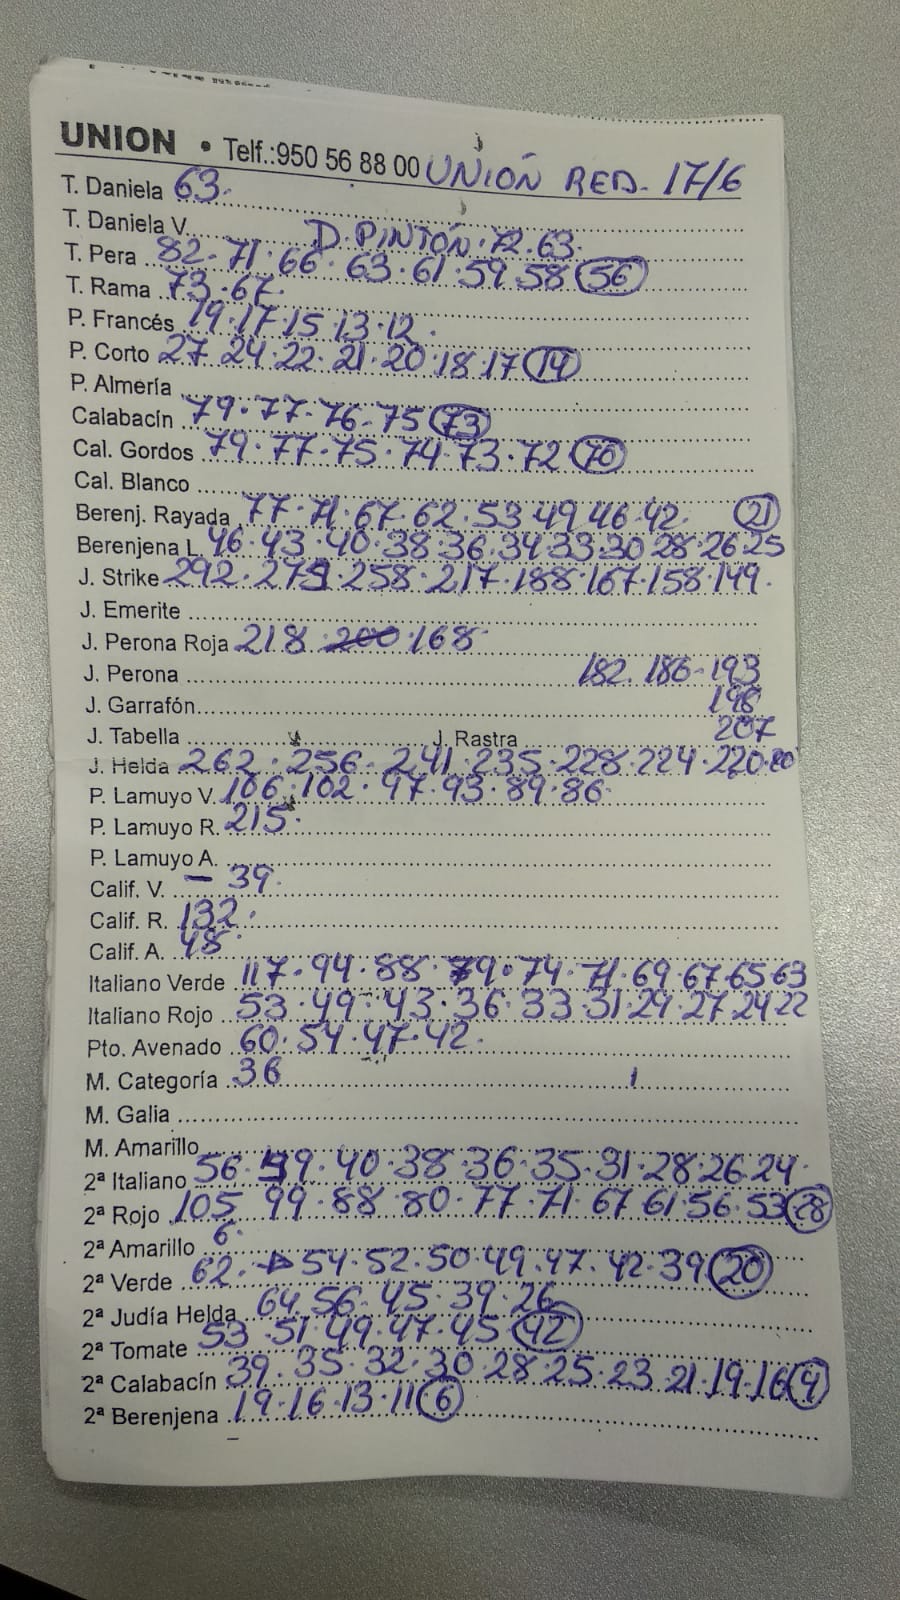 UNION • Telf.:950 56 88 00 UNIÓN RED. 17/6
T. Daniela 63.
T. Daniela V. D. PINTÓN. 72. 63.
T. Pera 82. 71. 66. 63. 61. 59. 58 56
T. Rama 73. 67.
P. Francés 19. 17. 15. 13. 12.
P. Corto 27. 24. 22. 21. 20. 18. 17 14
P. Almería
Calabacín 79. 77. 76. 75 73
Cal. Gordos 79. 77. 75. 74. 73. 72 70
Cal. Blanco
Berenj. Rayada 77. 71. 67. 62. 53. 49. 46. 42. 21
Berenjena L. 46. 43. 40. 38. 36. 34. 33. 30. 28. 26. 25
J. Strike 292. 275. 258. 217. 188. 167. 158. 149.
J. Emerite
J. Perona Roja 218. 200 168
J. Perona 182. 186. 193
J. Garrafón 198
J. Tabella J. Rastra 207
J. Helda 262. 256. 241. 235. 228. 224. 220.
P. Lamuyo V. 106. 102. 97. 93. 89. 86.
P. Lamuyo R. 215.
P. Lamuyo A.
Calif. V. - 39.
Calif. R. 132.
Calif. A. 48.
Italiano Verde 117. 94. 88. 79. 74. 71. 69. 67. 65 63
Italiano Rojo 53. 49. 43. 36. 33. 31. 29. 27. 24 22
Pto. Avenado 60. 54. 47. 42.
M. Categoría 36
M. Galia
M. Amarillo
2ª Italiano 56. 49. 40. 38. 36. 35. 31. 28. 26. 24.
2ª Rojo 105. 99. 88. 80. 77. 71. 67. 61. 56. 53 28
2ª Amarillo 6.
2ª Verde 62. 54. 52. 50. 49. 47. 42. 39 20
2ª Judía Helda 64. 56. 45. 39. 26
2ª Tomate 53. 51. 49. 47. 45 42
2ª Calabacín 39. 35. 32. 30. 28. 25. 23. 21. 19. 16 9
2ª Berenjena 19. 16. 13. 11 6